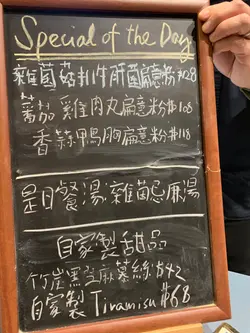 Special of the Day
雜菌菇扒牛肝菌扁意粉$128
蕃茄雞肉丸扁意粉$108
香蒜鴨胸扁意粉$118
是日餐湯:雜菌忌廉湯
自家製甜品
竹炭黑芝麻慕絲$42
自家製Tiramisu $68